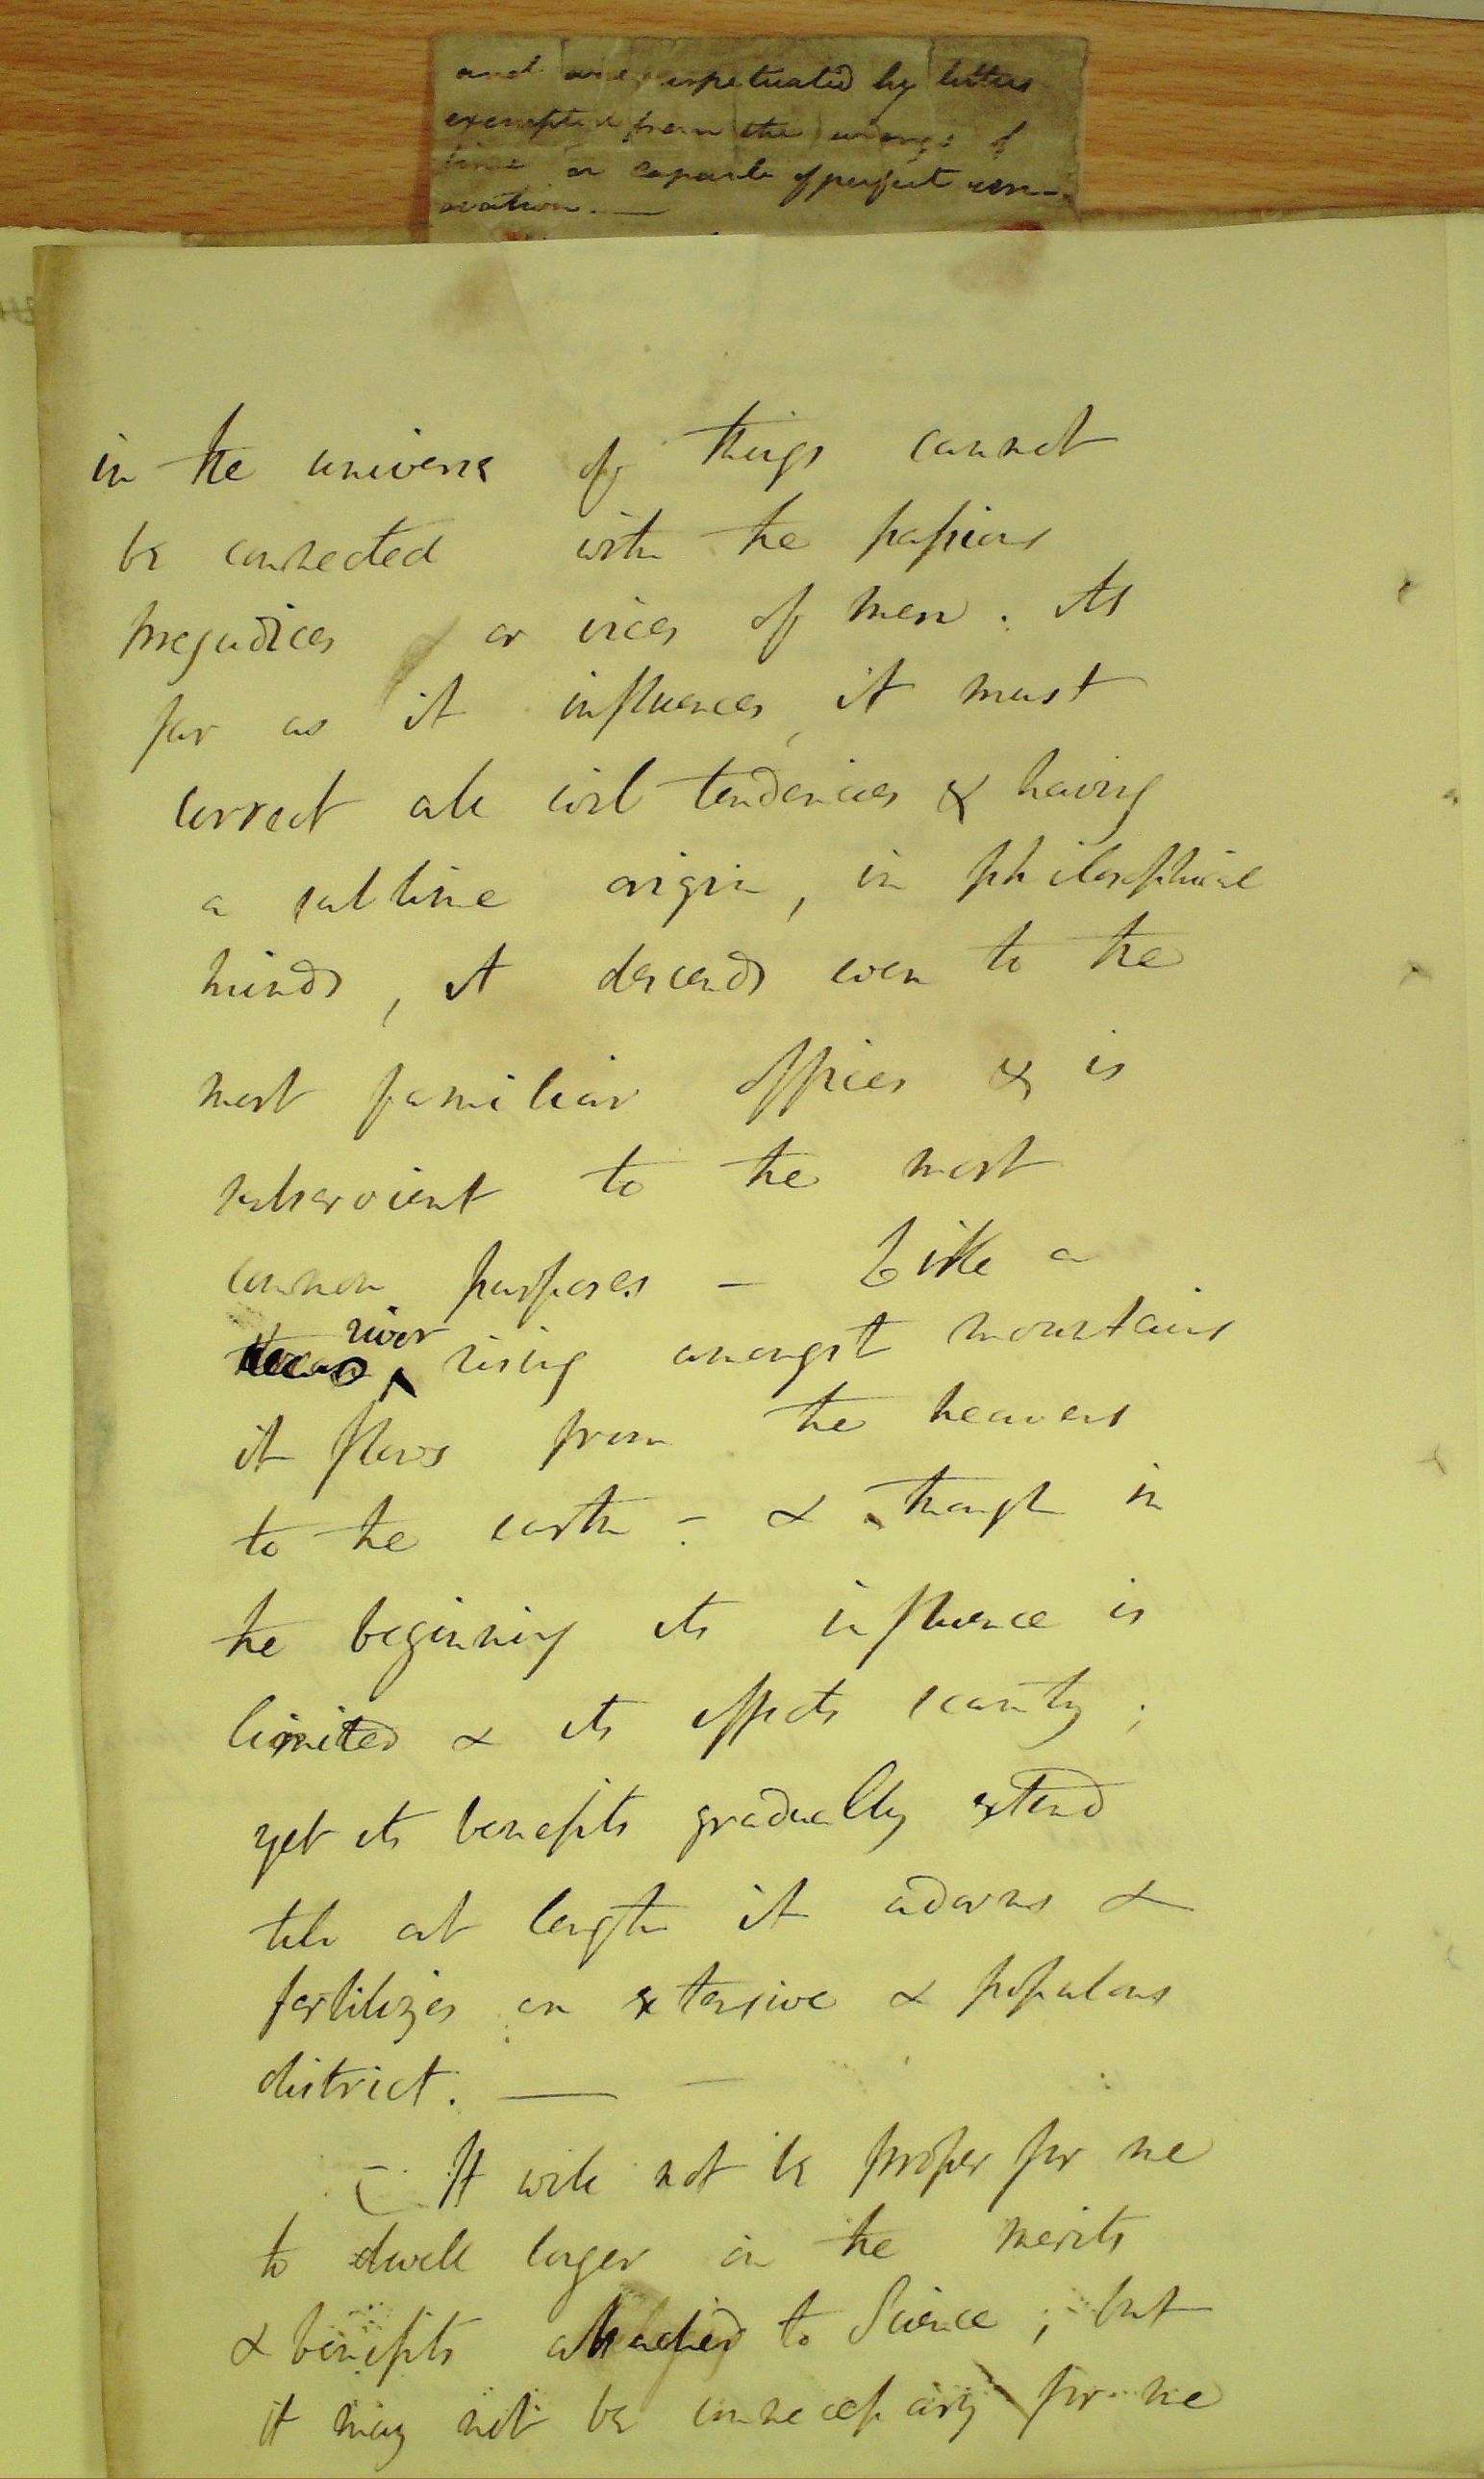 and are perpetuated by letters
exempted from the wrongs of
time or capable of perfect ren-
ovation. —
in the universe of things cannot
be connected with the passions
prejudices or vices of men. As
far as it influences, it must
correct all evil tendencies & having
a sublime origin, in philosophical
minds, it descends even to the
most familiar offices & is
subservient to the most
common purposes — Like a
river
rising amongst mountains
it flows from the heavens
to the earth - & though in
the beginning its influence is
limited & its effects scanty;
yet its benefits gradually extend
till at length it adorns &
fertilizes an extensive & populous
district. —— —
— It will not be proper for me
to dwell longer on the merits
& benefits attached to Science; but
it may not be unnecessary for me